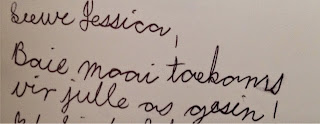 Liewe Jessica,
Baie mooi toekoms
vir julle as gesin!